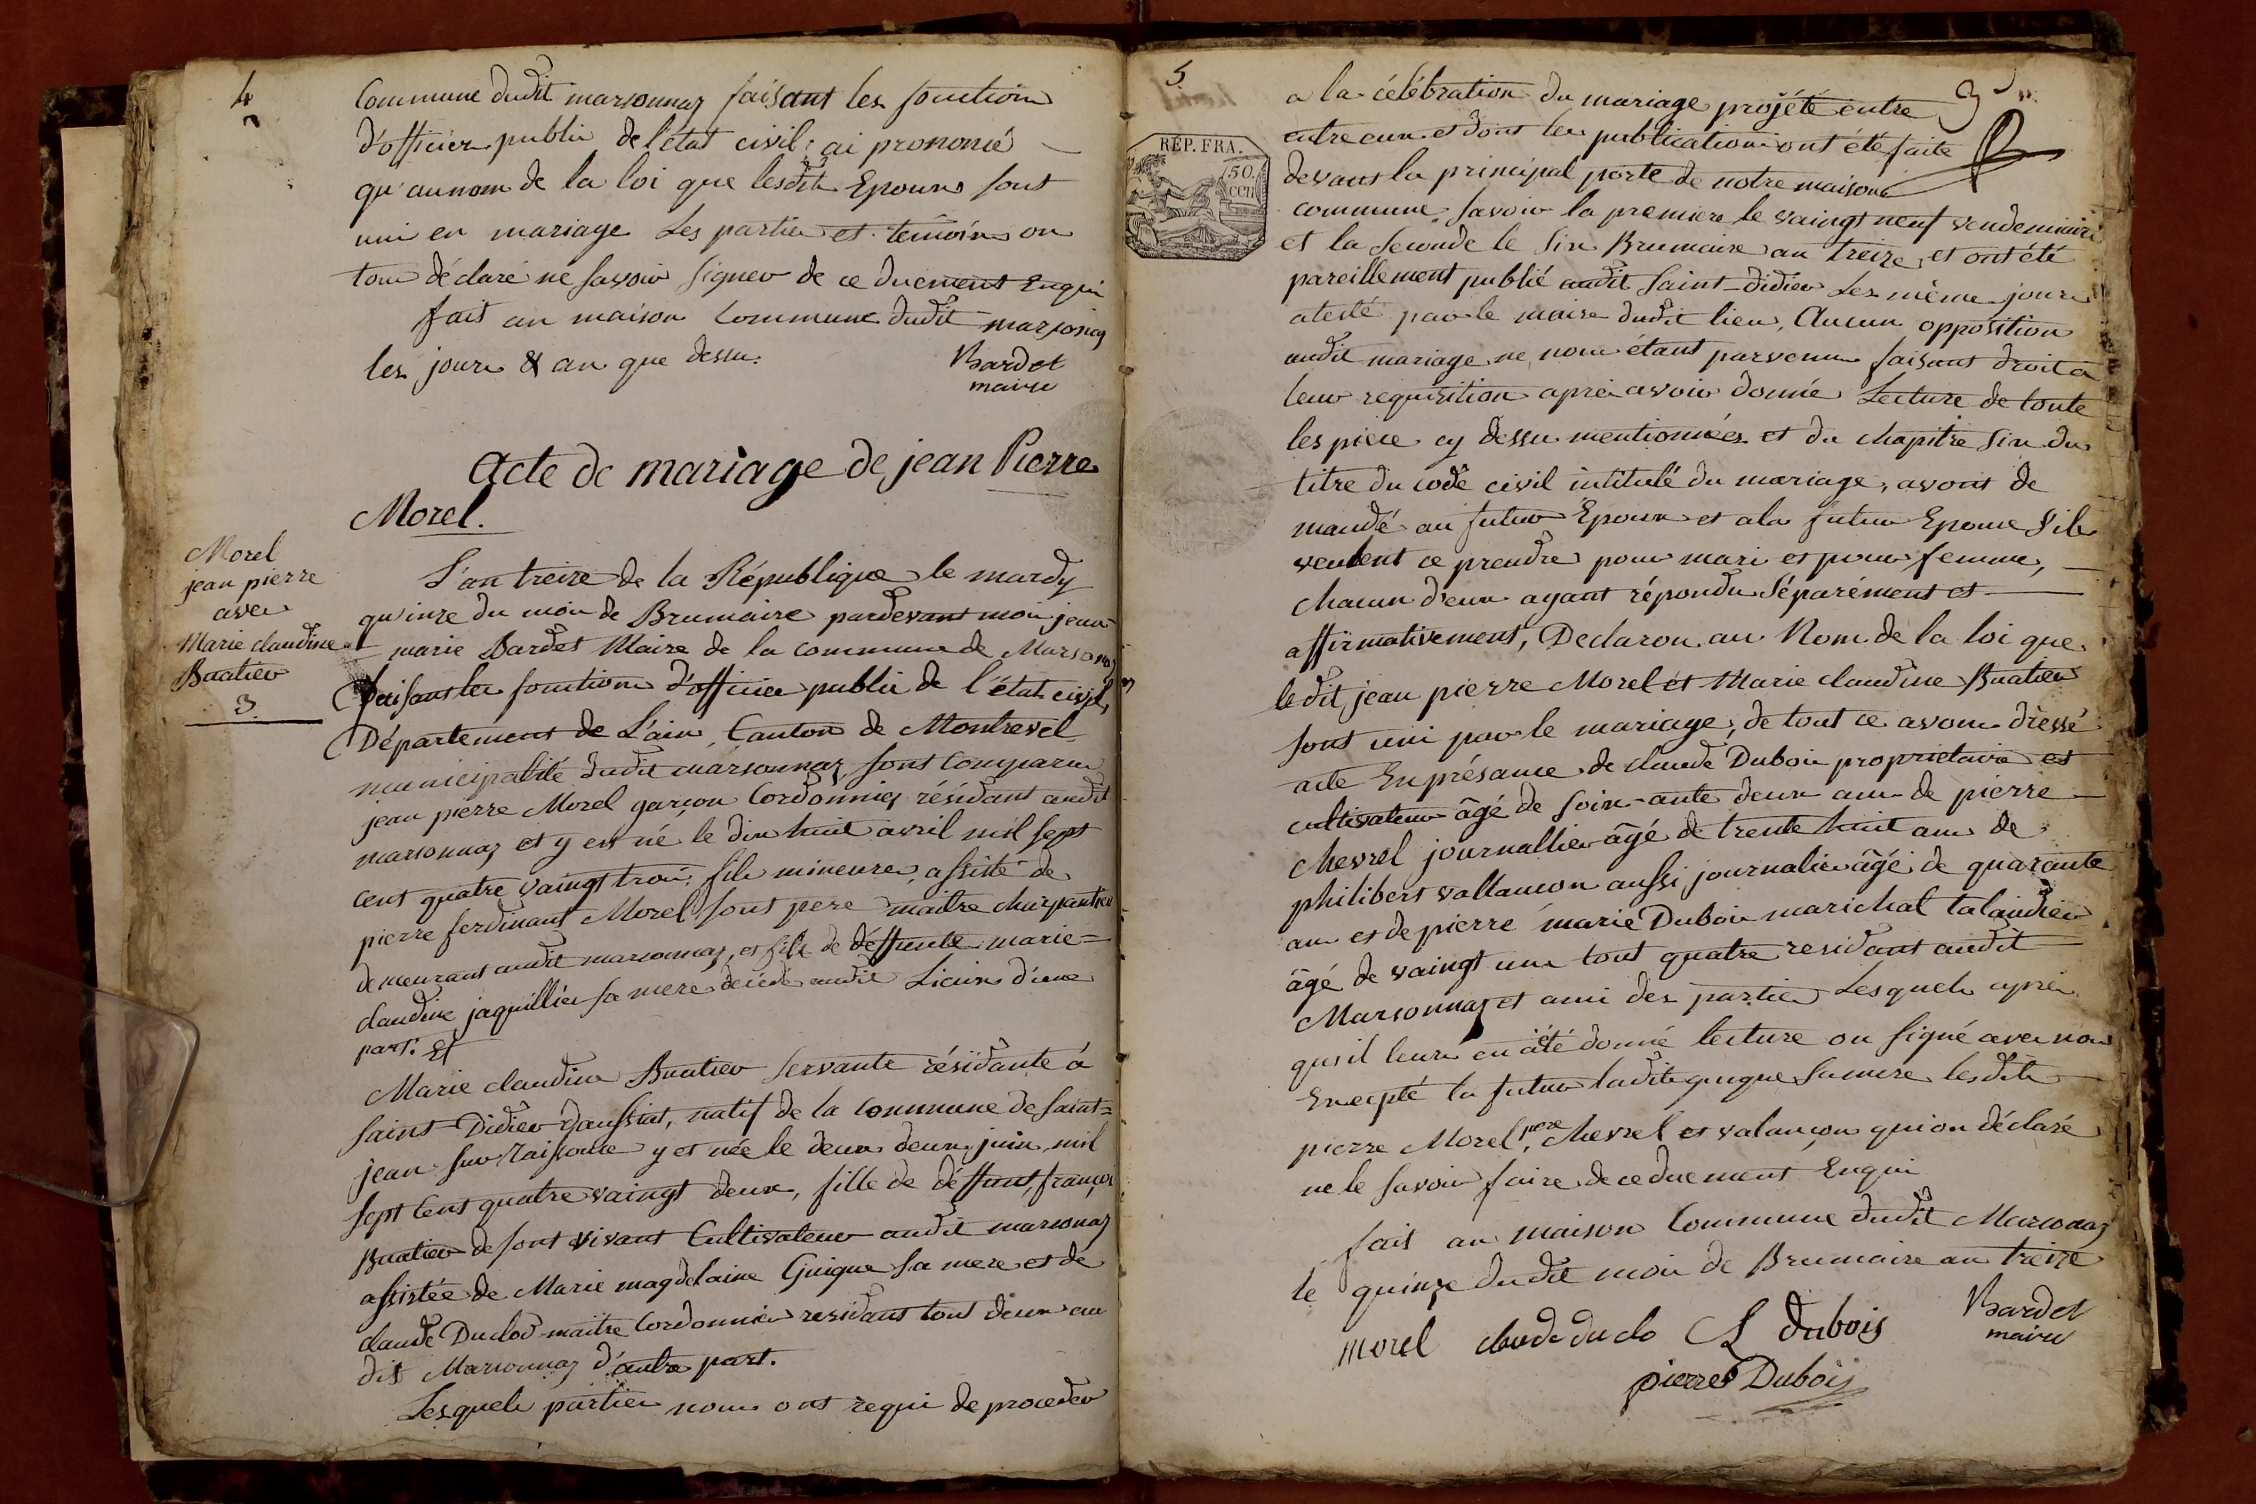 4
Commune dudit marsonnaz faisant les fonction
d'officier public de l'état civil; ai prononcé
qu'aunom de la loi que lesdit Epoux sont
uni en mariage Les partie et temoins on
tour déclaré ne savoir signer de ce duement Enquis
fait an maison Commune dudit marsonaz
les jour & an que dessu.
Bardet
maire
Acte de mariage de jean Pierre
Morel.
Morel
jean pierre
avec
Marie claudine
Buatier
3
L'an treize de la République le mardy
quinze du moi de Brumaire pardevant moi jean
marie Bardet Maire de la commune de Marsonaz
faisant les fonction d'officier public de l'état civil,
Département de L'ain, Canton de Montrevel
municipalité dudit marsonnaz, sont Comparu
jean pierre Morel garçon Cordonnier résidant audit
marsonnaz et y est né le dix huit avril mil sept
cent quatre vaingt trois, fils mineure, assisté de
pierre ferdinant Morel sont pere maitre charpantier
demeurant audit marsonnaz, et fils de déffunte marie=
claudine jaquillier sa mere décédé audit Lieux d'une
part. Et
Marie claudine Buatier servante résidante à
saint Didier d'aussiat, natif de la commune de saint=
jean sur raissouse y et née le deux deux juin mil
sept cent quatre vaingt deux, fille de déffunt françois
Buatier de sont vivant Cultivateur audit marsonaz
assistée de Marie magdelaine Guigue sa mere et de
claude Duclod maitre Cordonnier residant tout deux au
dit Marsonnaz d'autre part.
Lesquels partier nous ont requi de proceder
5
3
RÉP. FRA.
50.
cen
a la célébration du mariage projété entre
entre eux et dont les publication ont été faite
devant la principal porte de notre maison
commune, savoir la premiere le vaingt neuf vendemiaire
et la seconde le six Brumaire an treize, et ont été
pareillement publié audit saint-didier Les même jour
atesté par le maire dudit lieu, Aucun opposition
audit mariage ne nour étant parvenu faisant droit a
leur requisition aprer avoir donné Lecture de toute
les piece cy dessu mentionnées et du chapitre six du
titre du code civil intitulé du mariage, avont de
mandé au futur Epoux et a la futur Epouse s'ils
veulent ce prendre pour mari et pour femme,
chacun d'eux ayant répondu séparément et
affirmativement, Declaron au Nom de la loi que
le dit jean pierre Morel et Marie claudine Buatier
sont uni par le mariage, de tout ce avons dressé
acte En présance de claude Duboir proprietaire et
cultivateur âgé de soix-ante deux an de pierre
chevrel journallier âgé de trente huit an de
philibert vallancon aussi journalier âgé de quarante
an et de pierre marie Duboir marichal talaindier
âgé de vaingt un tout quatre residant audit
Marsonnaz et ami des partier Lesquels aprer
qu'il leur en a été donné lecture on signé avec nou
Excepté la futur ladite guigue sa mere lesdit
pierre Morel pere, chevrel et valançon qui on déclaré
ne le savoir faire de ce duement Enqui
fait an maison Commune dudit Marsonaz
le quinze dudit moi de Brumaire an treize
morel claude duclo CL dubois
Bardet
maire
pierre Dubois